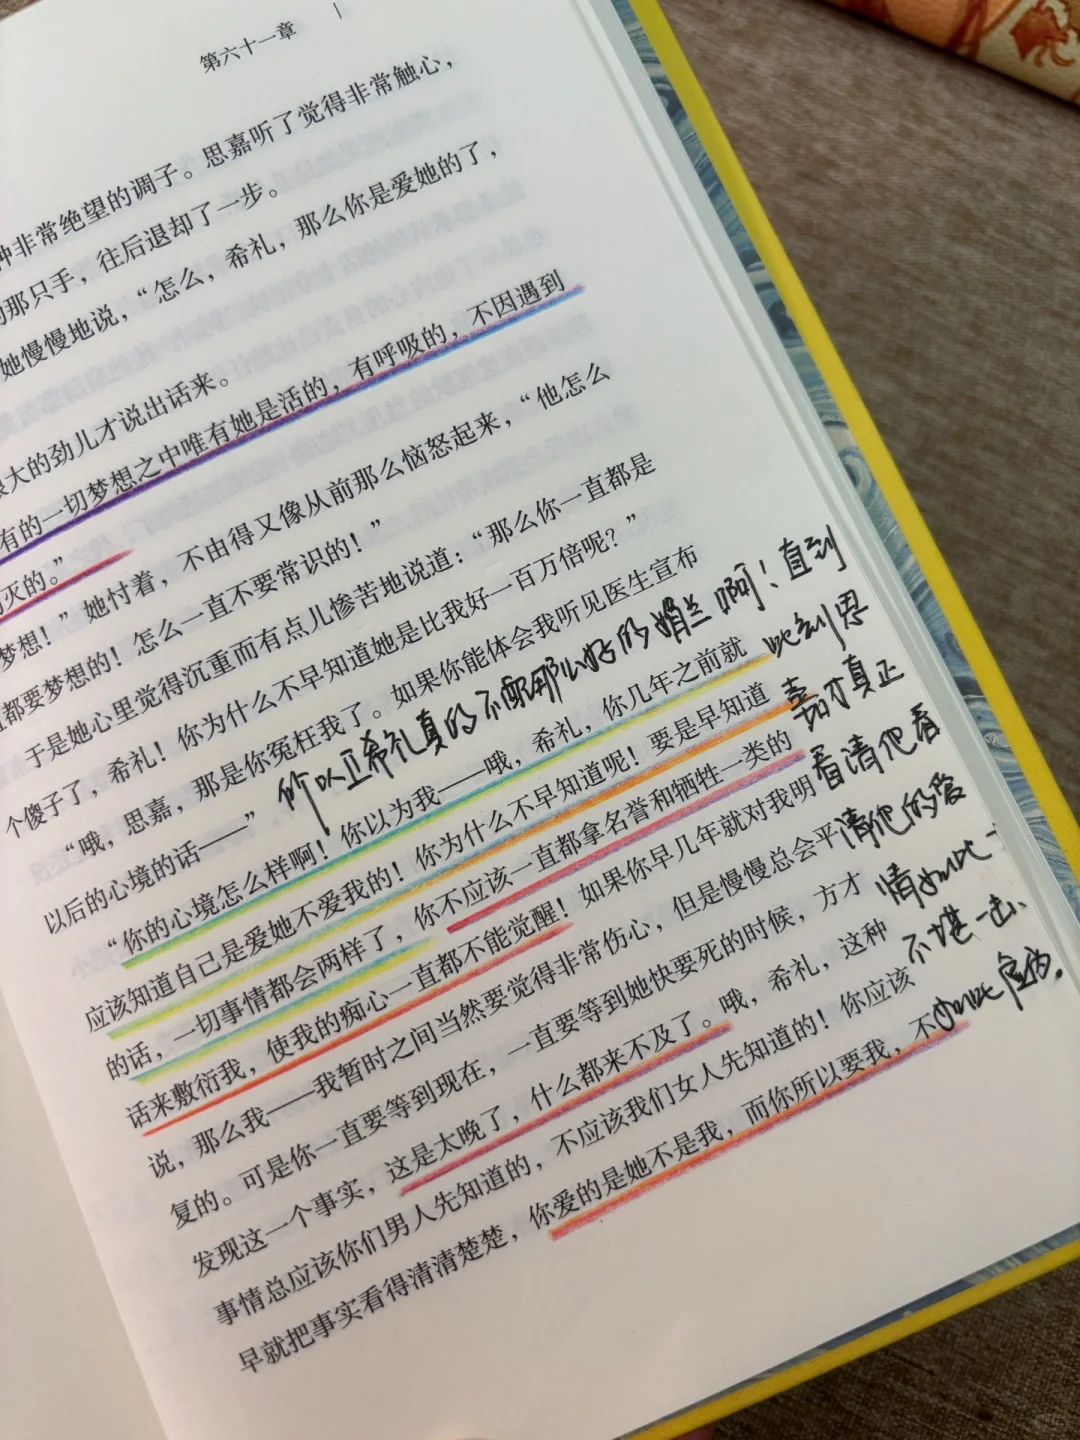 第六十一章
种非常绝望的调子。思嘉听了觉得非常触心，
的那只手，往后退却了一步。
她慢慢地说，“怎么，希礼，那么你是爱她的了，
很大的劲儿才说出话来。
有的一切梦想之中唯有她是活的，有呼吸的，不因遇到
灭的。”
梦想！”她忖着，不由得又像从前那么恼怒起来，“他怎么
都要梦想的！怎么一直不要常识的！”
于是她心里觉得沉重而有点儿惨苦地说道：“那么你一直都是
个傻子了，希礼！你为什么不早知道她是比我好一百万倍呢？”
“哦，思嘉，那是你冤枉我了。如果你能体会我听见医生宣布
以后的心境的话——”
所以卫希礼真的不配那么好的媚兰啊！直到
此刻思
嘉才真正
看清他看
清他的爱
情如此
不堪一击、
如此虚伪。
“你的心境怎么样啊！你以为我——哦，希礼，你几年之前就
应该知道自己是爱她不爱我的！你为什么不早知道呢！要是早知道
的话，一切事情都会两样了，你不应该一直都拿名誉和牺牲一类的
话来敷衍我，使我的痴心一直都不能觉醒！如果你早几年就对我明
说，那么我——我暂时之间当然要觉得非常伤心，但是慢慢总会平
复的。可是你一直要等到现在，一直要等到她快要死的时候，方才
发现这一个事实，这是太晚了，什么都来不及了。哦，希礼，这种
事情总应该你们男人先知道的，不应该我们女人先知道的！你应该
早就把事实看得清清楚楚，你爱的是她不是我，而你所以要我，不